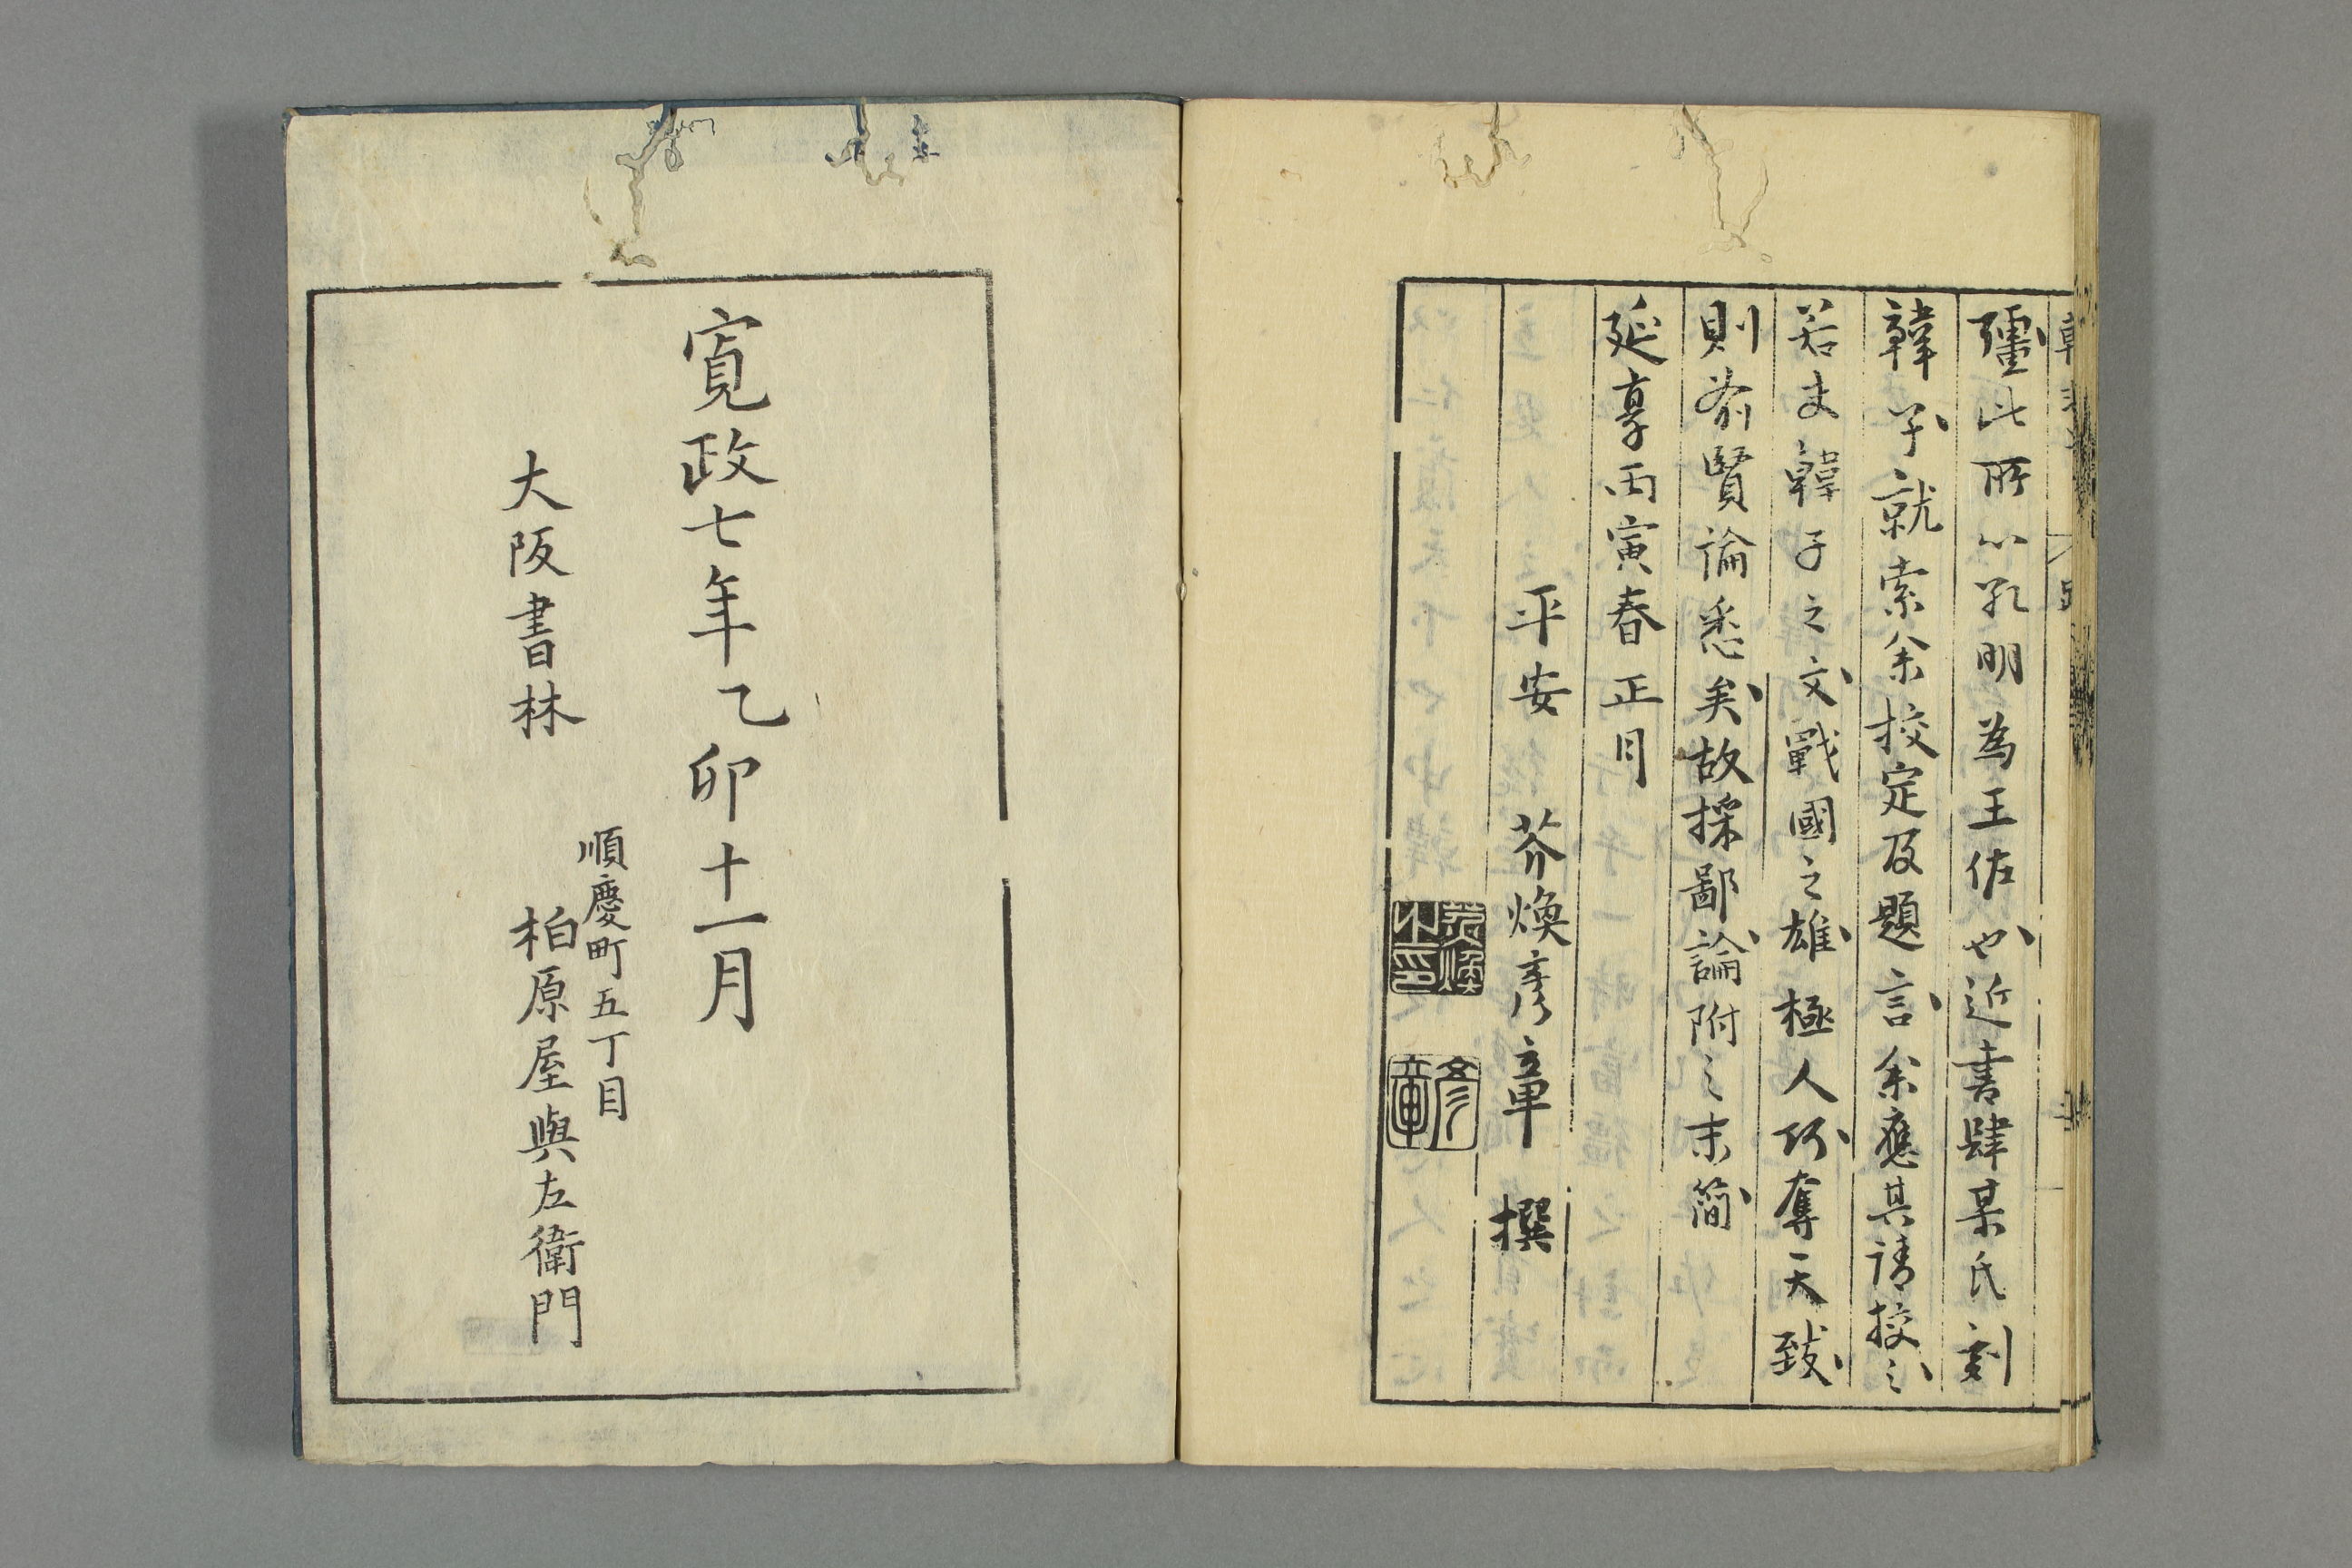 彊此所以孔明為王佐也近書肆某氏刻
韓子就索余挍定及題言余應其請挍之
若夫韓子之文戰國之雄極人巧奪天致
則前賢論悉矣故採鄙論附之末簡
延享丙寅春正月
平安 芥煥彥章 撰
芥煥之印
彥章
寛政七年乙卯十一月
順慶町五丁目
大阪書林 柏原屋與左衛門